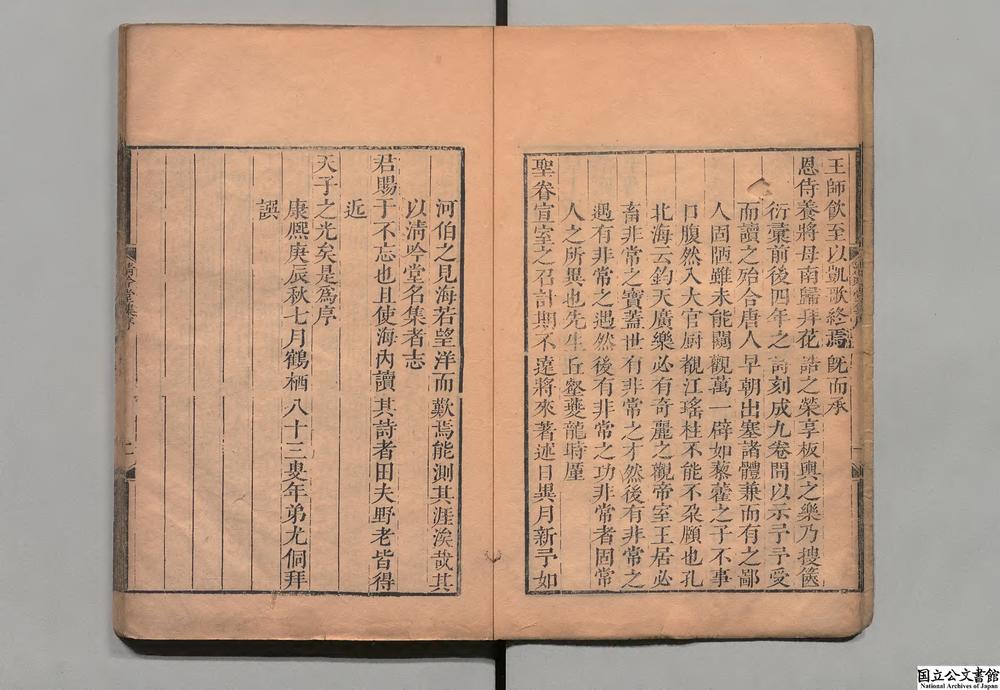 王師飲至以凱歌終焉既而承
恩侍養將母南歸拜花誥之榮享板輿之樂乃搜篋
衍彚前後四年之詩刻成九卷問以示予予受
而讀之殆合唐人早朝出塞諸體兼而有之鄙
人固陋雖未能闚觀萬一辟如藜藿之子不事
口腹然入大官厨覩江瑤柱不能不朶頤也孔
北海云鈞天廣樂必有奇麗之觀帝室王居必
畜非常之寶蓋世有非常之才然後有非常之
遇有非常之遇然後有非常之功非常者固常
人之所異也先生丘壑夔龍時厪
聖眷宣室之召計期不遠將來著述日異月新予如
河伯之見海若望洋而歎焉能測其涯涘哉其
以清吟堂名集者志
君賜于不忘也且使海內讀其詩者田夫野老皆得
近
天子之光矣是爲序
康熙庚辰秋七月鶴栖八十三叟年弟尤侗拜
譔
清吟堂集序
国立公文書館
National Archives of Japan